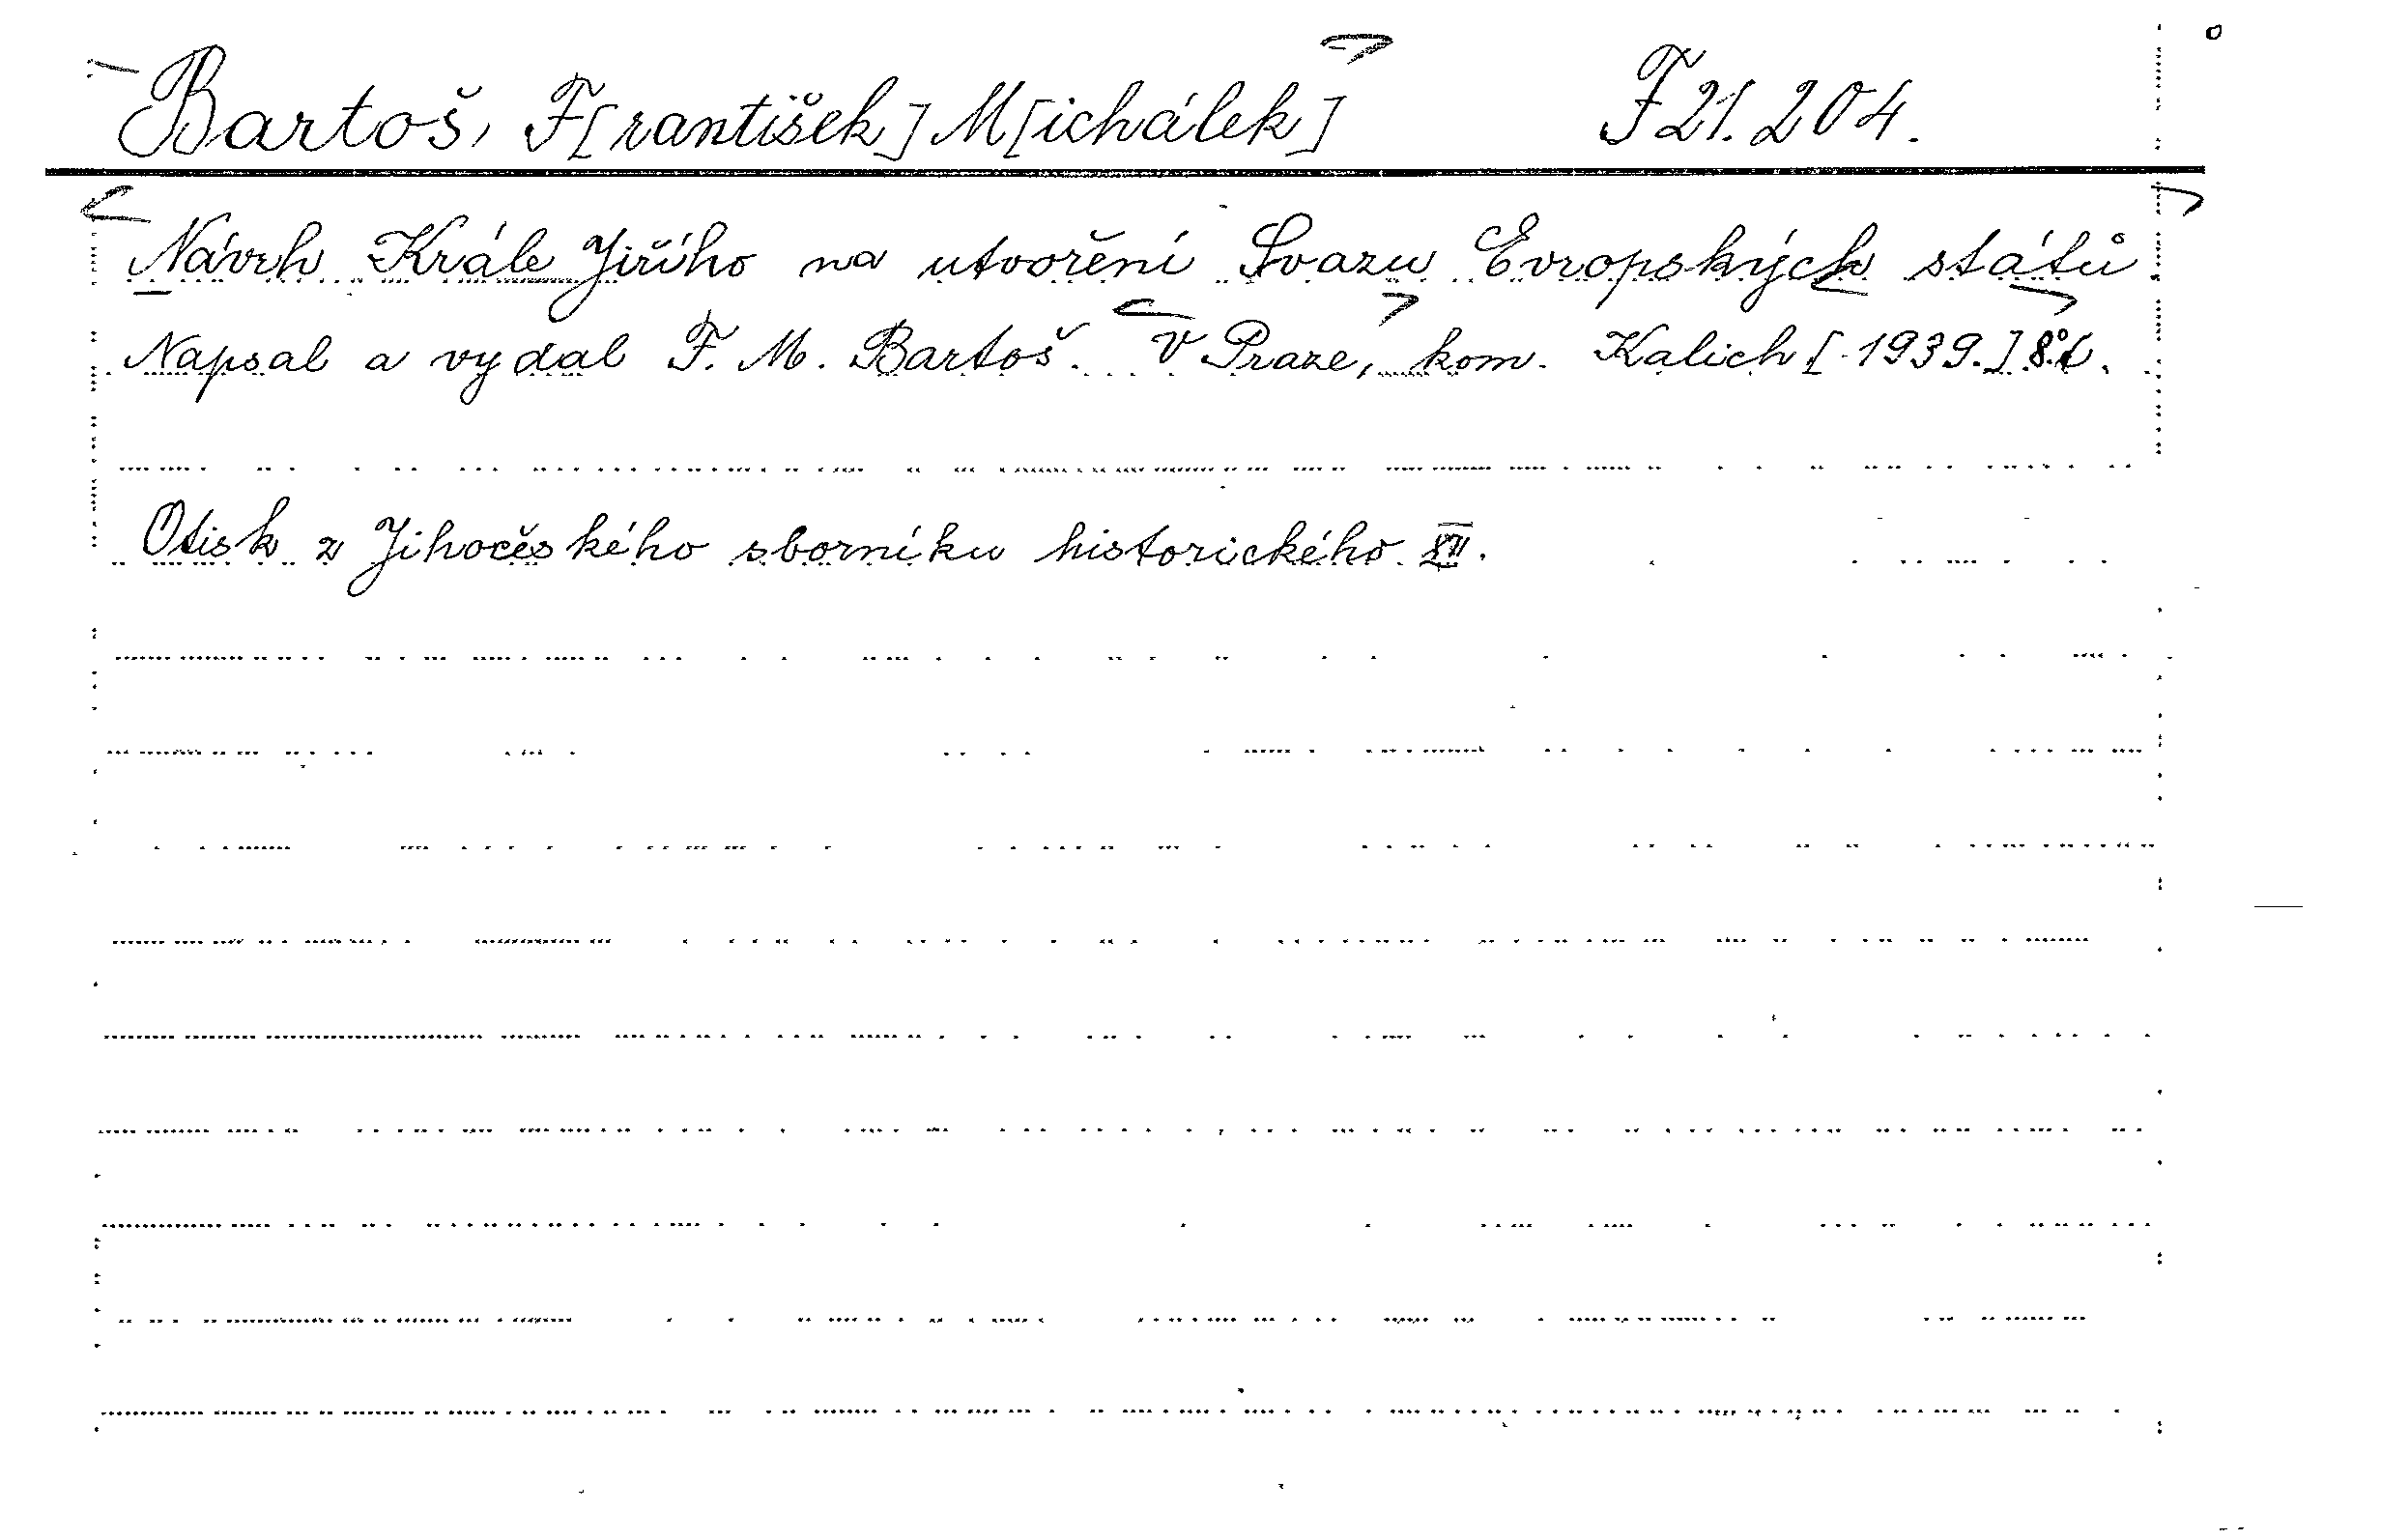 Bartoš, F[rantišek] M[ichálek] F 21.204.
Návrh Krále Jiřího na utvoření Svazu Evropských států
Napsal a vydal F. M. Bartoš. V Praze, kom. Kalich [1939.] 8°.
Otisk z Jihočeského sborníku historického XII.